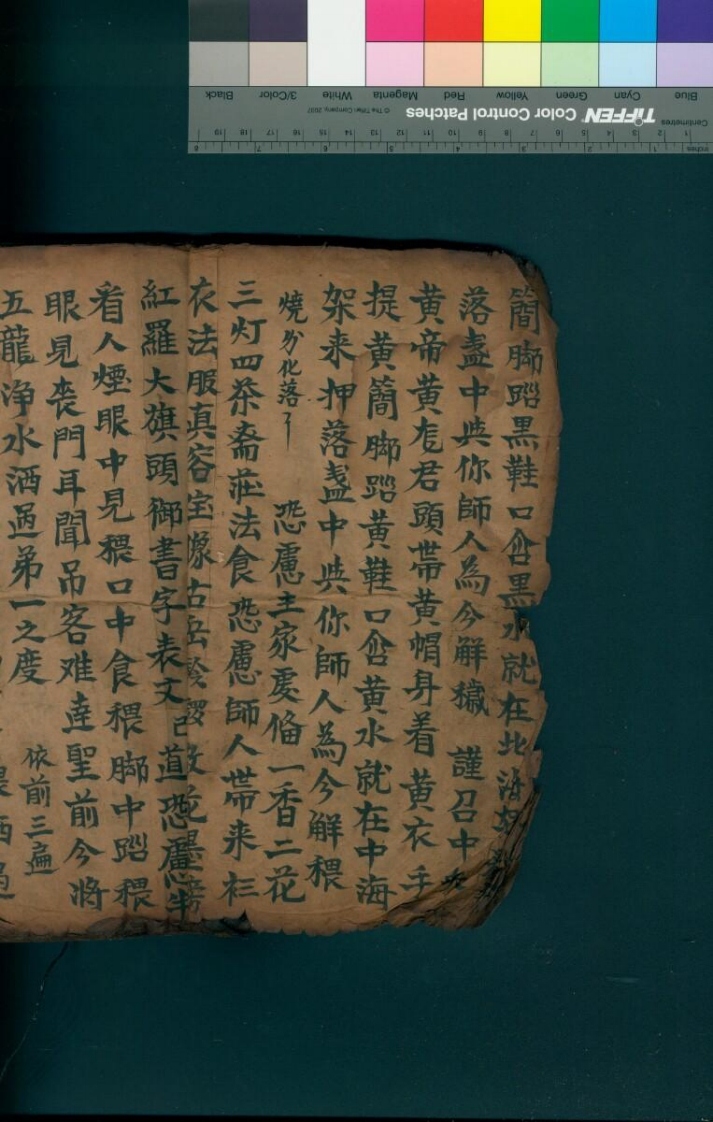 簡脚踏黑鞋口含黑水就在北海
落盞中与你師人為今解穢 謹召中
黄帝黄君頭带黄帽身着黄衣手
提黄簡脚踏黄鞋口含黄水就在中海
架来押落盞中与你師人為今解穢
燒分化落了 恐慮主家俻一香二花
三灯四茶斋法食恐慮師人带来衫
衣法服真容宝像
紅羅大旗頭御書字表文已道恐慮
看人煙眼中見穢口中食穢脚中踏穢
眼見喪門耳聞吊客难達聖前今將
五龍净水洒過弟一之度 依前三遍
洒過
TIFFEN Color Control Patches
© The Tiffen Company, 2007
Centimetres
Inches
Blue Cyan Green Yellow Red Magenta White 3/Color Black
1 2 3 4 5 6 7 8 9 10 11 12 13 14 15 16 17 18 19
1 2 3 4 5 6 7 8